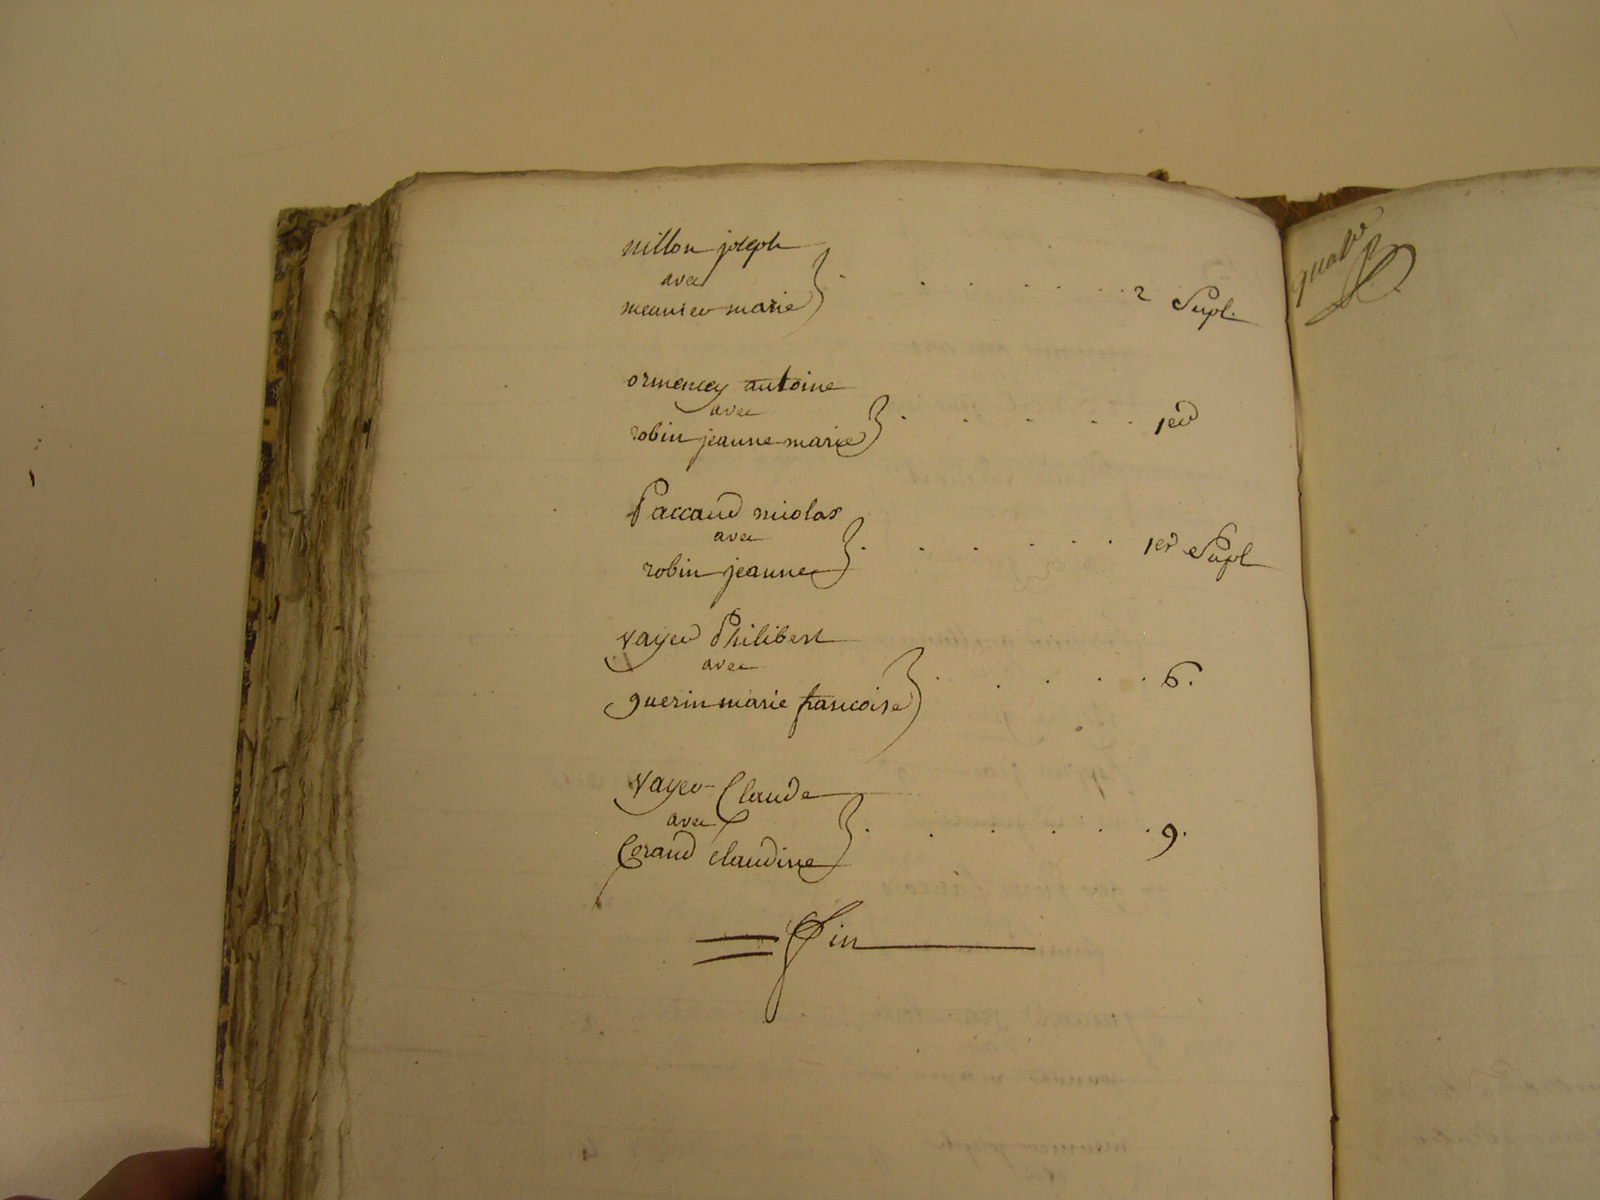 millon joseph
avec
meunier marie . . . . . . 2 Supl.
ormencey antoine
avec
robin jeanne marie . . . . . 1er
Paccaud nicolas
avec
robin jeanne . . . . . . 1er Supl
vayer Philibert
avec
guerin marie francoise . . . . . 6.
vayer Claude
avec
Corand claudine . . . . . . 9.
Fin